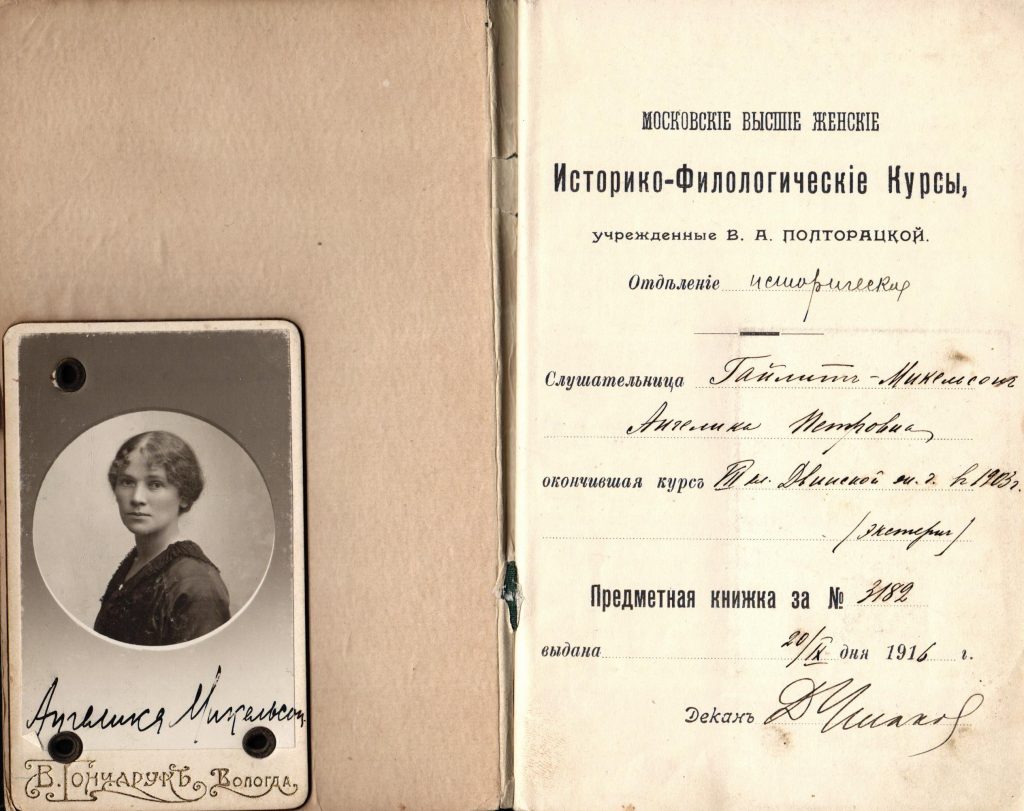 Ангелика Микельсон
В. Гончарукъ, Вологда,
МОСКОВСКІЕ ВЫСШІЕ ЖЕНСКІЕ
Историко-Филологическіе Курсы,
учрежденные В. А. ПОЛТОРАЦКОЙ.
Отдѣленіе историческая
Слушательница Гайлитъ-Микельсонъ
Ангелика Петровна
окончившая курсъ кл. Двинской 1903 г.
(экстерн)
Предметная книжка за № 3182
выдана 20/IX дня 1916 г.
Деканъ